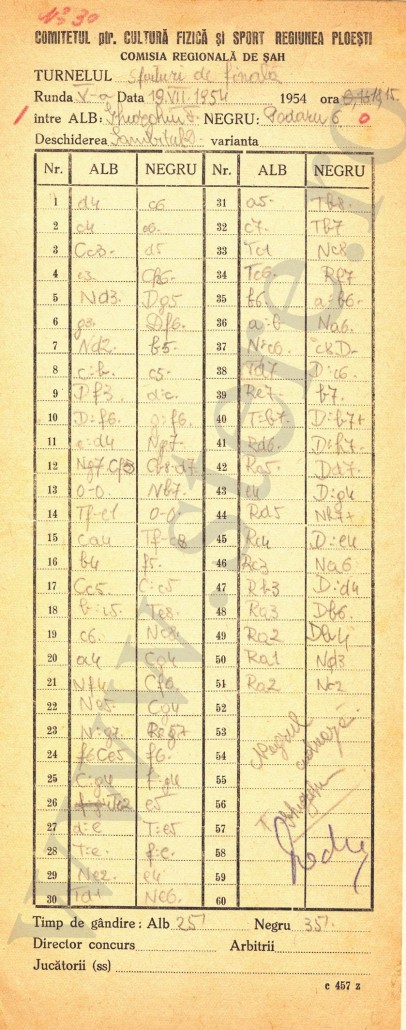 No 30
COMITETUL ptr. CULTURĂ FIZICĂ și SPORT REGIUNEA PLOEȘTI
COMISIA REGIONALĂ DE ȘAH
TURNELUL sferturi de finala
Runda V-a Data 19.VII.1954 1954 ora
1 între ALB: NEGRU: Podaru G 0
Deschiderea varianta
Nr. ALB NEGRU Nr. ALB NEGRU
1 d4 c6 31 a5 Tb8
2 c4 e6 32 c7 Tb7
3 Cc3 d5 33 Tc1 Nc8
4 e3 Cf6 34 Tc6 Rf7
5 Nd3 Dg5 35 b6 a:b6
6 g3 Df6 36 a:b Na6
7 Nd2 b5 37 N:c6 c8D
8 c:b c5 38 Td7 D:c6
9 Df3 d:c 39 Re7 b7
10 D:f6 g:f6 40 T:b7 D:b7+
11 e:d4 Ng7 41 Rd6 D:h7
12 Cf3 Cb8-d7 42 Ra5 Dd7
13 0-0 Nb7 43 e4 D:g4
14 Tf-e1 0-0 44 Rd5 Nb7+
15 Ca4 Tf-c8 45 Rc4 D:e4
16 b4 f5 46 Rc3 Na6
17 Cc5 C:c5 47 Rb3 D:d4
18 b:c5 Tc8 48 Ra3 Db6
19 c6 Nc8 49 Ra2 Db4
20 a4 Cg4 50 Ra1 Nd3
21 Nf4 Cf6 51 Ra2 Nc2
22 Ne5 Cg4 52
23 N:g7 R:g7 53
24 Ce5 f6 54
25 C:g4 f:g4 55
26 e5 56
27 d:e T:e5 57
28 T:e f:e 58
29 Ne2 e4 59
30 Td1 Ne6 60
Negrul cedează
Timp de gândire: Alb 25' Negru 35'
Director concurs Arbitrii
Jucătorii (ss)
c 457 z